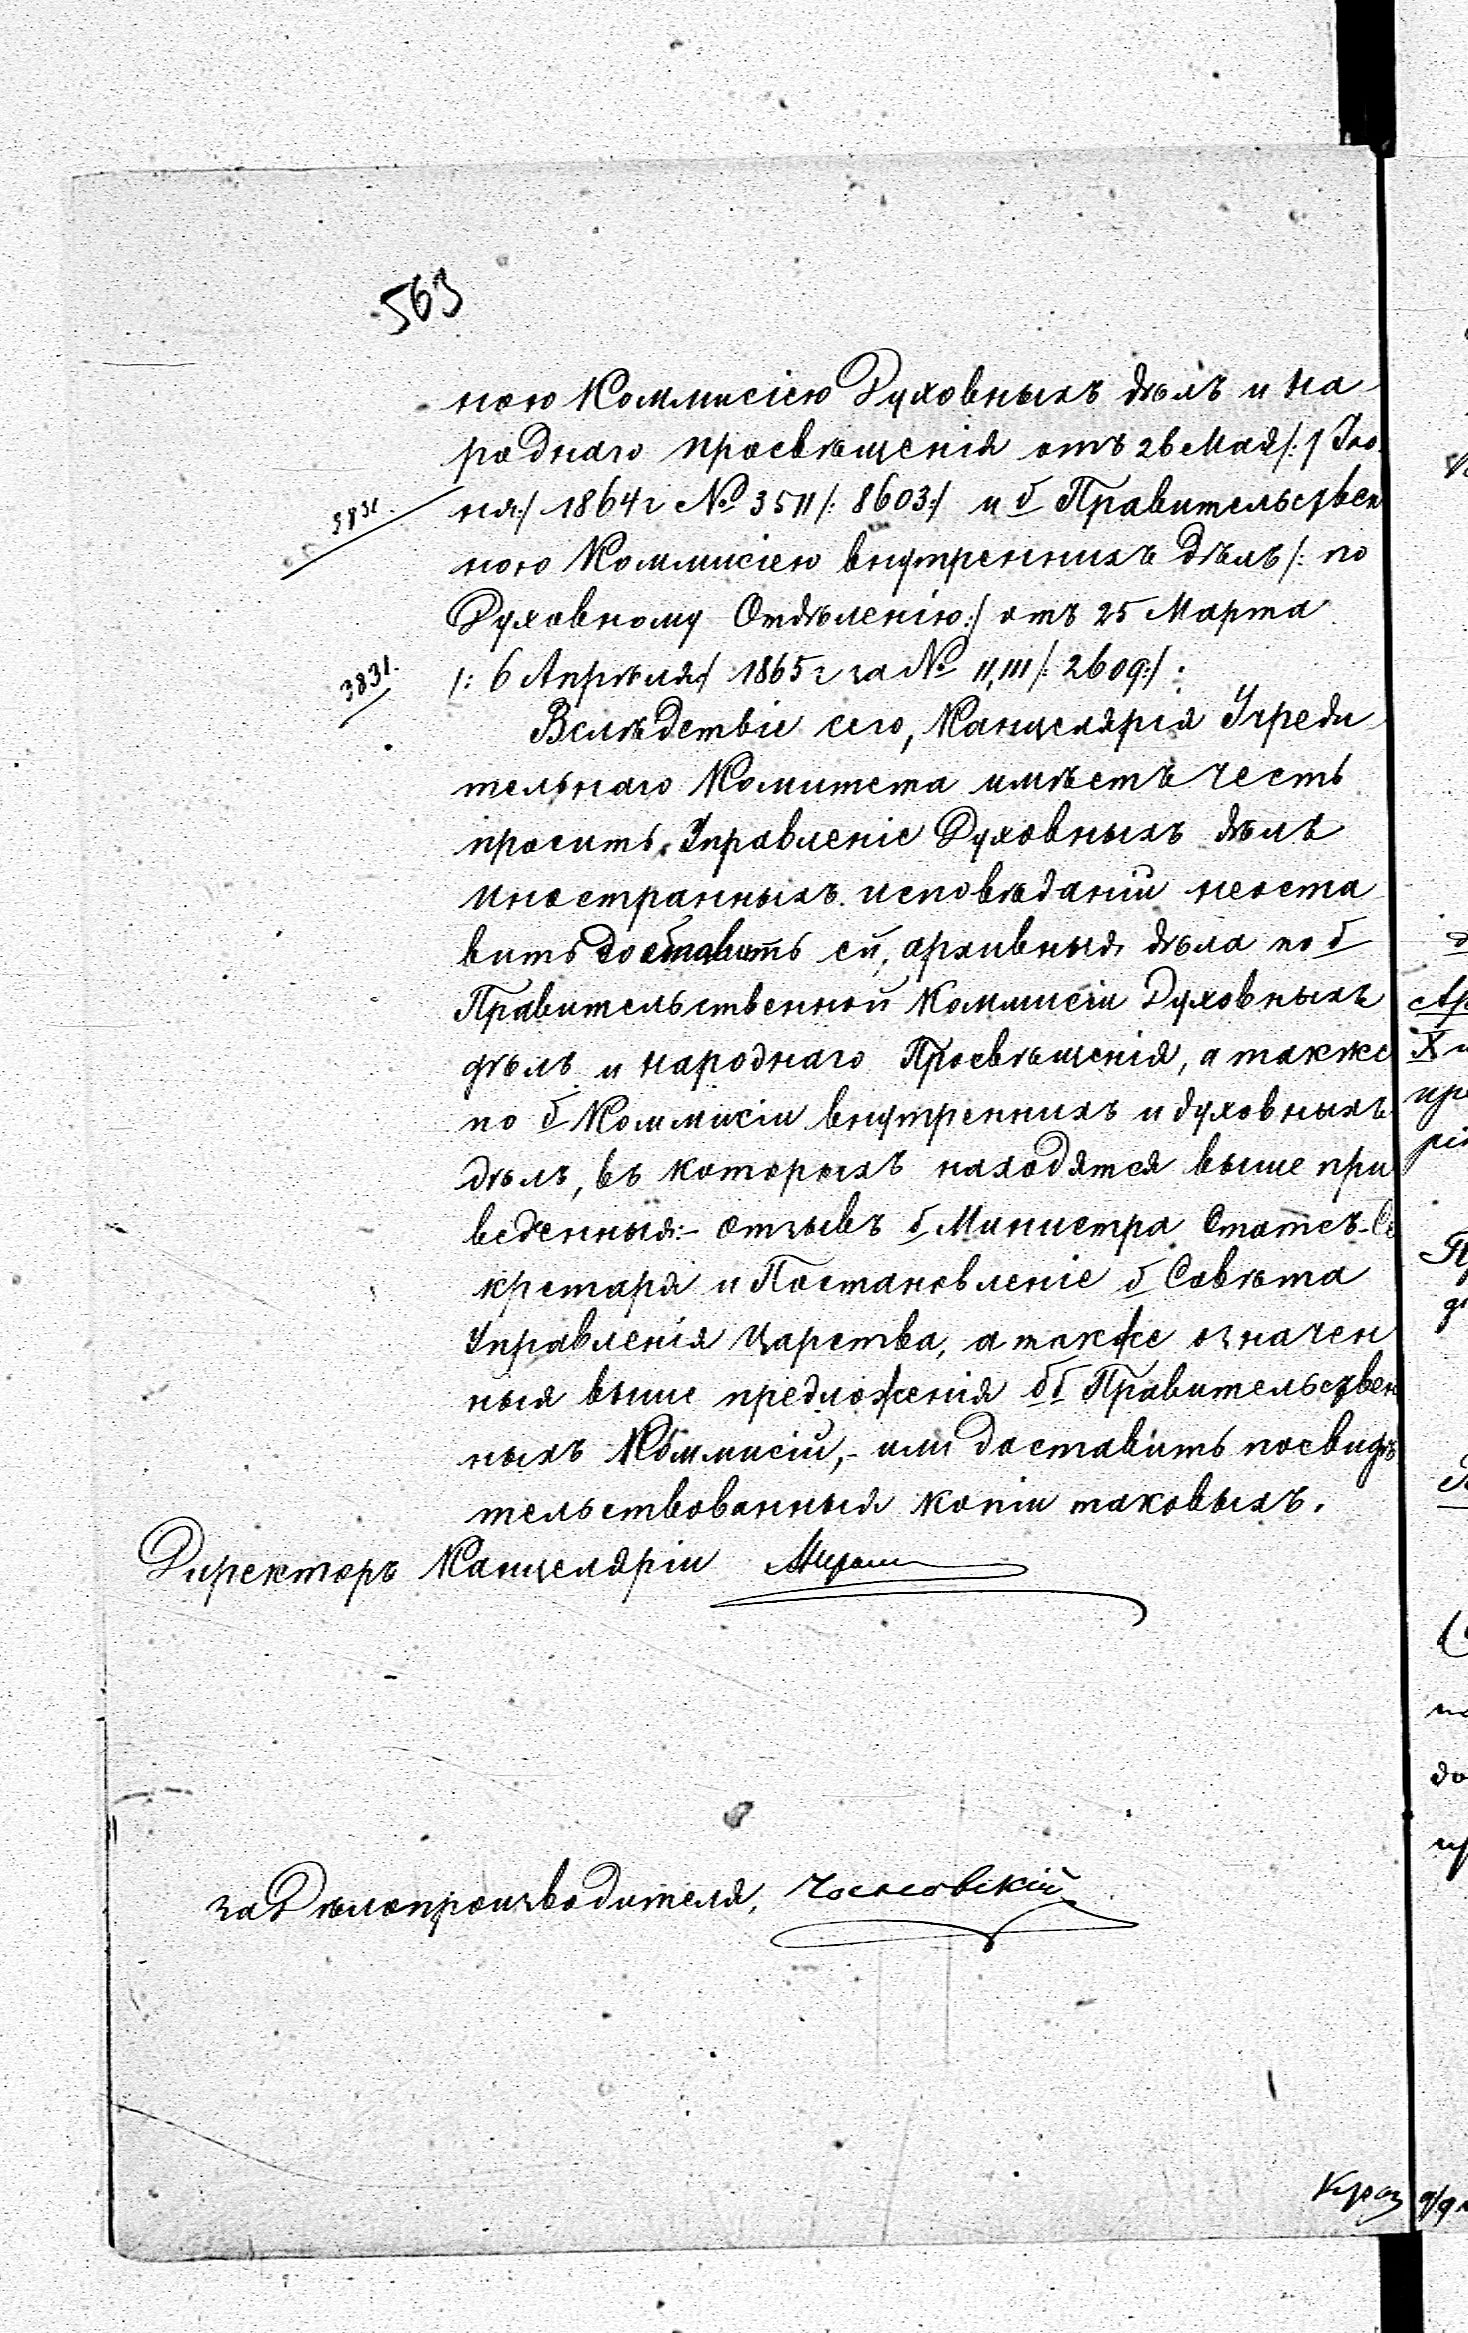 563
ною Коммисіею Духовныхъ дѣлъ и На-
роднаго просвѣщенія отъ 26 Мая /: 7 Iю-
ня:/ 1864 г № 3511 /: 8603:/ и б Правительствен
3831.
ною Коммисіею внутреннихъ дѣлъ /: по
Духовному Отдѣленію:/ отъ 25 Марта
/: 6 Апрѣля:/ 1865 г за № 11,111 /: 2609:/.
3831.
Вслѣдствіе сего, Канцелярія Учреди-
тельнаго Комитета имѣетъ честь
просить Управленіе Духовныхъ дѣлъ
Иностранныхъ исповѣданій неоста-
вить доставить ей, архивныя дѣла по б
Правительственной Коммисіи Духовныхъ
дѣлъ и народнаго Просвѣщенія, а также
по б Коммисіи внутреннихъ и духовныхъ
дѣлъ, въ которыхъ находятся выше при
веденныя:- отзывъ б Министра Статсъ-Се
кретаря и Постановленіе б Совѣта
Управленія Царства, а также означен
ныя выше предложенія бб Правительствен
ныхъ Коммисій,- или доставить посвидѣ
тельствованныя копіи таковыхъ.
Директоръ Канцеляріи
за Дѣлопроизводителя,